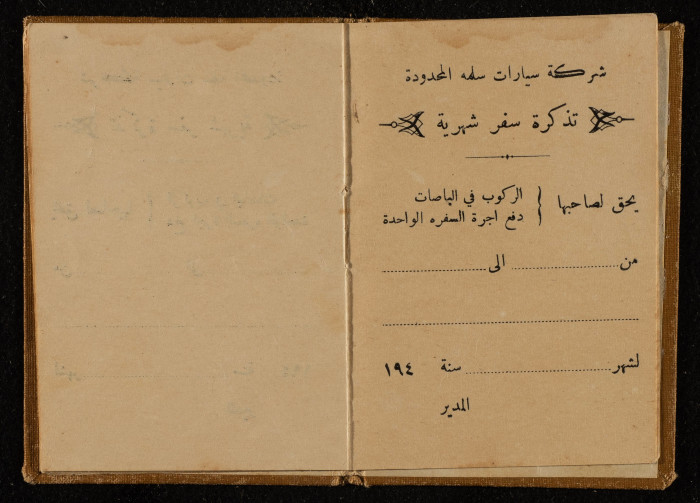 شركة سيارات سلمه المحدودة
تذكرة سفر شهرية
يحق لصاحبها { الركوب في الباصات
دفع اجرة السفره الواحدة
من ........................ الى ........................
........................................................
لشهر ................................ سنة ١٩٤
المدير